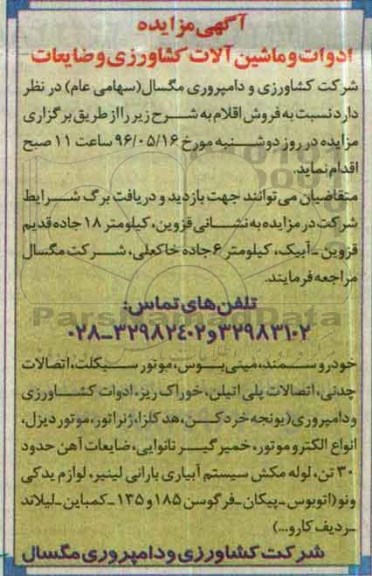 آگهی مزایده
ادوات و ماشین آلات کشاورزی و ضایعات
شرکت کشاورزی و دامپروری مگسال (سهامی عام) در نظر
دارد نسبت به فروش اقلام به شرح زیر را از طریق برگزاری
مزایده در روز دوشنبه مورخ ۹۶/۰۵/۱۶ ساعت ۱۱ صبح
اقدام نماید.
متقاضیان می توانند جهت بازدید و دریافت برگ شرایط
شرکت در مزایده به نشانی قزوین، کیلومتر ۱۸ جاده قدیم
قزوین - آبیک، کیلومتر ۶ جاده خاکعلی، شرکت مگسال
مراجعه فرمایند.
تلفن های تماس:
۳۲۹۸۳۱۰۲ و ۳۲۹۸۲۴۰۲-۰۲۸
خودرو سمند، مینی بوس، موتور سیکلت، اتصالات
چدنی، اتصالات پلی اتیلن، خوراک ریز، ادوات کشاورزی
و دامپروری (یونجه خردکن، هد کلزا، ژنراتور، موتور دیزل،
انواع الکتروموتور، خمیرگیر نانوایی، ضایعات آهن حدود
۳۰ تن، لوله مکش سیستم آبیاری بارانی لینیر، لوازم یدکی
و نو (اتوبوس - پیکان - فرگوسن ۱۸۵ و ۱۳۵ - کمباین - لیلاند
- ردیف کارو...)
شرکت کشاورزی و دامپروری مگسال
ParsNamadData